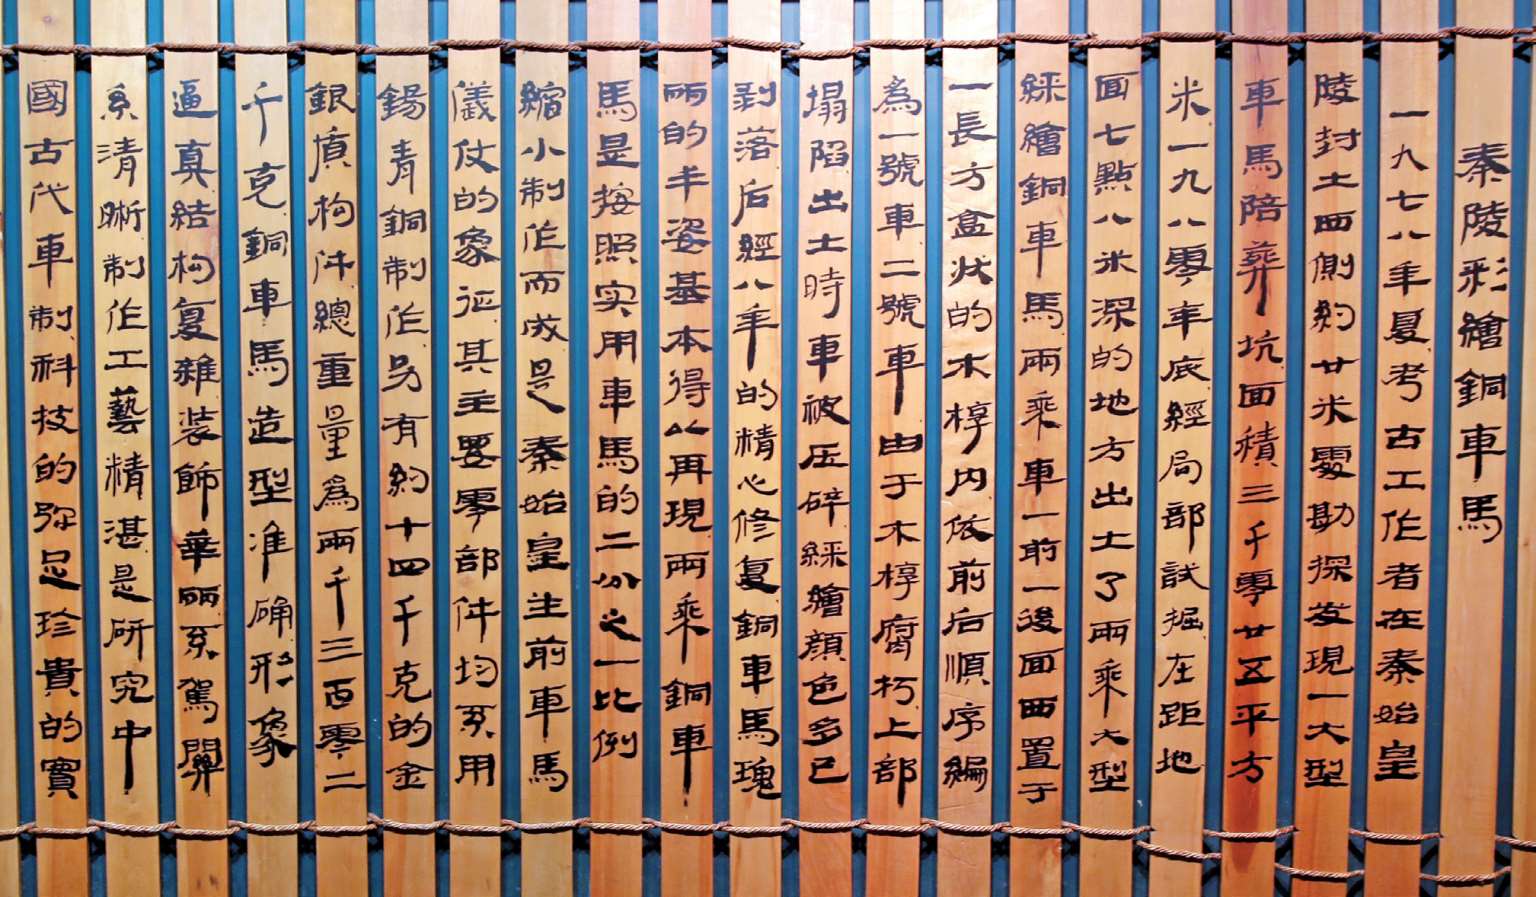 秦陵彩繪銅車馬
一九七八年夏考古工作者在秦始皇
陵封土西側約廿米處勘探发現一大型
車馬陪葬坑面積三千零廿五平方
米一九八零年底經局部試掘在距地
面七點八米深的地方出土了兩乘大型
綵繪銅車馬兩乘車一前一後面西置于
一長方盒状的木椁内依前后順序編
為一號車二號車由于木椁腐朽上部
塌陷出土時車被压碎綵繪顔色多已
剥落后經八年的精心修复銅車馬瑰
丽的丰姿基本得以再現兩乘銅車
馬是按照实用車馬的二分之一比例
縮小制作而成是秦始皇生前車馬
儀仗的象征其主要零部件均系用
錫青銅制作另有約十四千克的金
銀質构件總重量為兩千三百零二
千克銅車馬造型准确形象
逼真結构复雜装飾華丽系駕関
系清晰制作工藝精湛是研究中
國古代車制科技的弥足珍貴的實